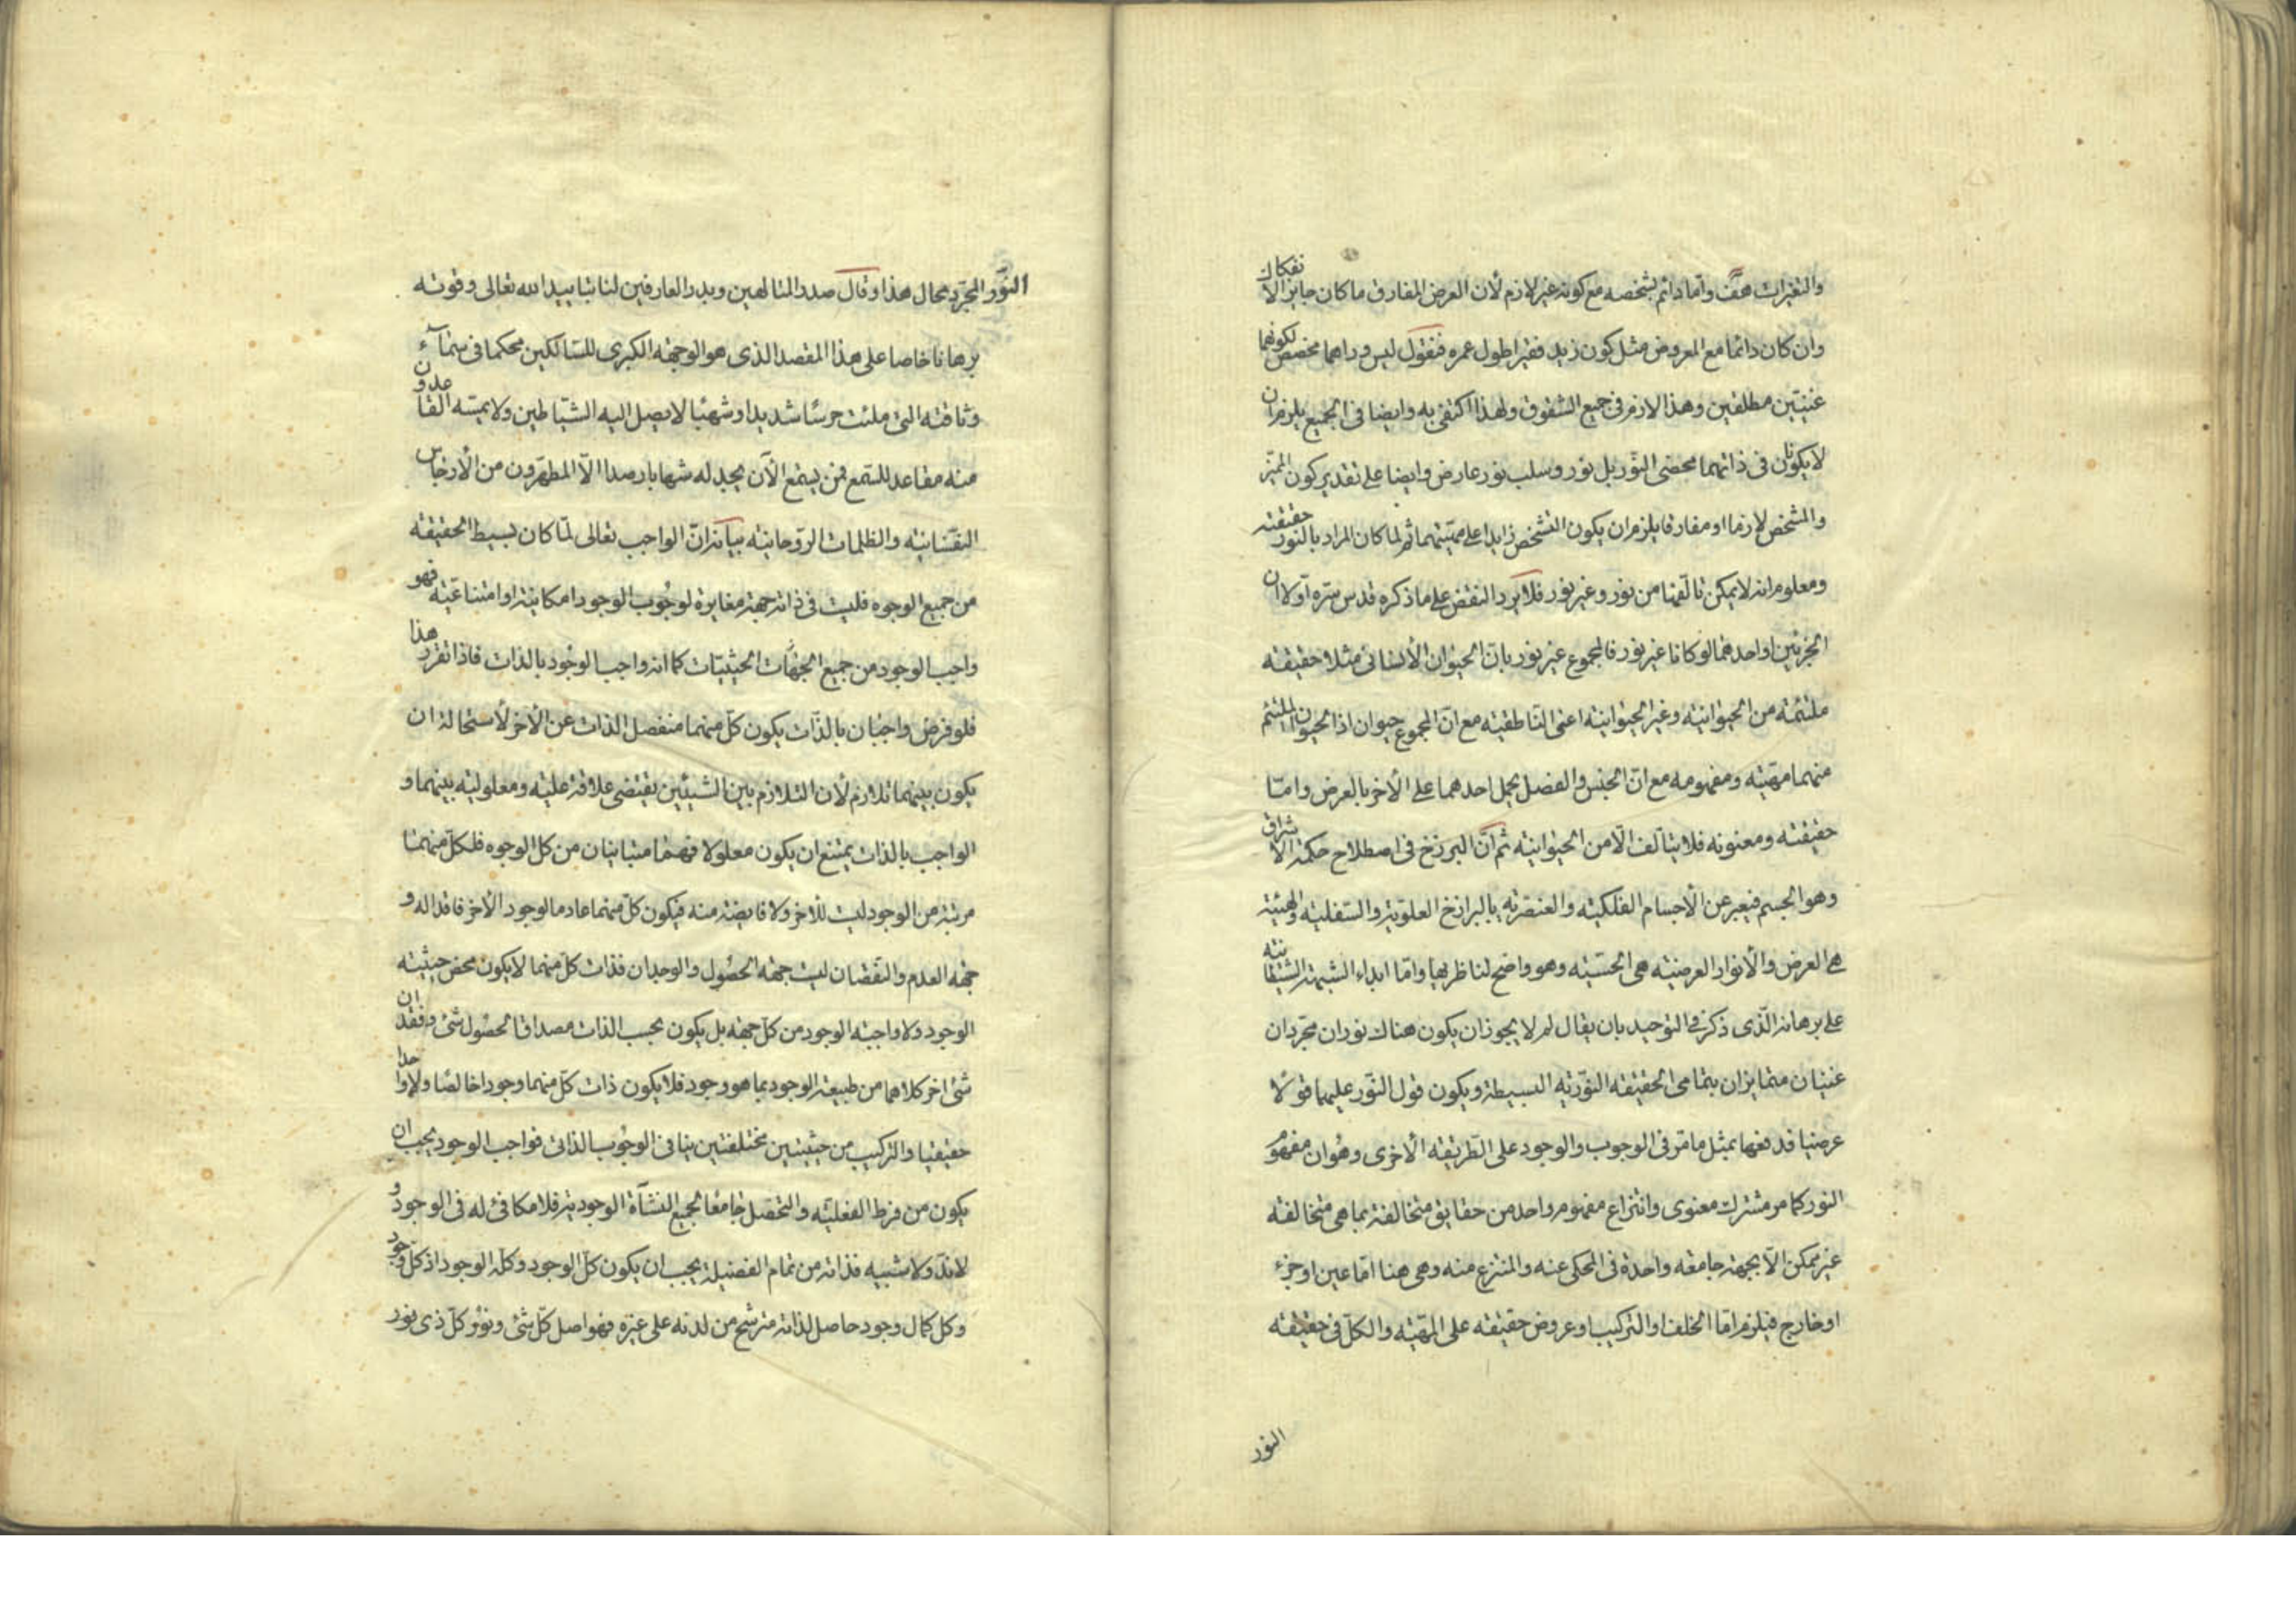 والتغيرات هف واما دائم بشخصه مع كونه غير لازم لأن العرض المفارق ما كان جايز الانفكاك
وان كان دائما مع المعروض مثل كون زيد فقيرا طول عمره فنقول ليس وراهما مخصص لكونهما
غنيّين مطلقين وهذا لازم فى جميع الشقوق ولهذا اكتفى به وايضا فى الجميع يلزم ان
لا يكونان فى ذاتهما محضى النّور بل نور وسلب نور عارض وايضا على تقدير كون المميّز
والمشخص لازما او مفارقا يلزم ان يكون التشخص زايدا على مهيّتهما ثم لما كان المراد بالنور حقيقته
ومعلوم انه لا يمكن تالّفها من نور وغير نور فلا يرد النقض على ما ذكره قدس سرّه اولا ان
الجزئين او احدهما لو كانا غير نور فالمجموع غير نور بانّ الحيوان الأنسانى مثلا حقيقته
ملتئمة من الحيوانيّه وغير الحيوانيّه اعنى النّاطقيّه مع انّ المجموع حيوان اذ الحيوان الملتئم
منهما مهيّته ومفهومه مع انّ الجنس والفصل يحمل احدهما على الأخر بالعرض وامّا
حقيقته ومعنونه فلا يتألف الّا من الحيوانيّه ثم انّ البرزخ فى اصطلاح حكمة الاشراق
وهو الجسم فيعبر عن الأجسام الفلكيّه والعنصريّه بالبرازخ العلويّه والسّفليّه والهيئة
هى العرض والأنوار العرضيّه هى الحسّيّه وهو واضح لناظريها وامّا ابداء الشبهة الشيطانيّه
على برهانه الّذى ذكر فى التوحيد بان يقال لم لا يجوز ان يكون هناك نوران مجرّدان
غنيّان متمايزان بتمامى الحقيقه النّوريّه البسيطة ويكون قول النّور عليهما قولًا
عرضيا فدفعها بمثل ما مرّ فى الوجوب والوجود على الطّريقه الأخرى وهو ان مفهوم
النور كما مر مشترك معنوى وانتزاع مفهوم واحد من حقايق متخالفة بما هى متخالفة
غير ممكن الّا بجهة جامعه واحدة فى المحكى عنه والمنتزع منه وهى هنا امّا عين او جزء
او خارج فيلزم امّا الخلف او التركيب او عروض حقيقته على المهيّه والكلّ فى حقيقته
النور
النّور المجرّد محال هذا وقال صدر المتالهين وبدر العارفين لنا بتاييد الله تعالى وقوته
برهانا خاصا على هذا المقصد الذى هو الوجهه الكبرى للسّالكين محكما فى سمآء
وثاقته التى ملئت حرسًا شديدا وشهبًا لا يصل اليه الشيّاطين ولا يمسّه القاعدون
منه مقاعد للسّمع فمن يستمع الآن يجد له شهابا رصدا الّا المطهّرون من الأرجاس
النفسانيّه والظلمات الروّحانيّه بيانه انّ الواجب تعالى لمّا كان بسيط الحقيقه
من جميع الوجوه فليست فى ذاته جهة مغايرة لوجوب الوجود امكانيّة او امتناعيّة فهو
واجب الوجود من جميع الجهات الحيثيّات كما انه واجب الوجود بالذات فاذا تقرر هذا
فلو فرض واجبان بالذّات يكون كلّ منهما منفصل الذات عن الأخر لأستحالة ان
يكون بينهما تلازم لأن التلازم بين الشيئين يقتضى علاقة عليّه ومعلوليّه بينهما و
الواجب بالذات يمتنع ان يكون معلولا فهما متباينان من كل الوجوه فلكلّ منهما
مرتبة من الوجود ليست للأخر ولا فايضة منه فيكون كلّ منهما عادما لوجود الأخر فاقدا له و
جهه العدم والنّقصان ليست جهه الحصول والوجدان فذات كلّ منهما لا يكون محض حيثيّه
الوجود ولا واجبه الوجود من كلّ جهه بل يكون بحسب الذات مصداقا لحصول شئ وفقدان
شئ اخر كلاهما من طبيعة الوجود بما هو وجود فلا يكون ذات كلّ منهما وجودا خالصًا ولا واحدا
حقيقيا والتركيب من حيثيتين مختلفتين ينافى الوجوب الذاتى فواجب الوجود يجب ان
يكون من فرط الفعليّه والتحصّل جامعًا لجميع النشآة الوجوديّة فلا مكافئ له فى الوجود و
لا ندّ ولا شبيه فذاته من تمام الفضيلة يجب ان يكون كلّ الوجود وكلّه الوجود اذ كلّ وجود
وكل كمال وجود حاصل لذاته مترشح من لدنه على غيره فهو اصل كلّ شئ ونور كلّ ذى نور